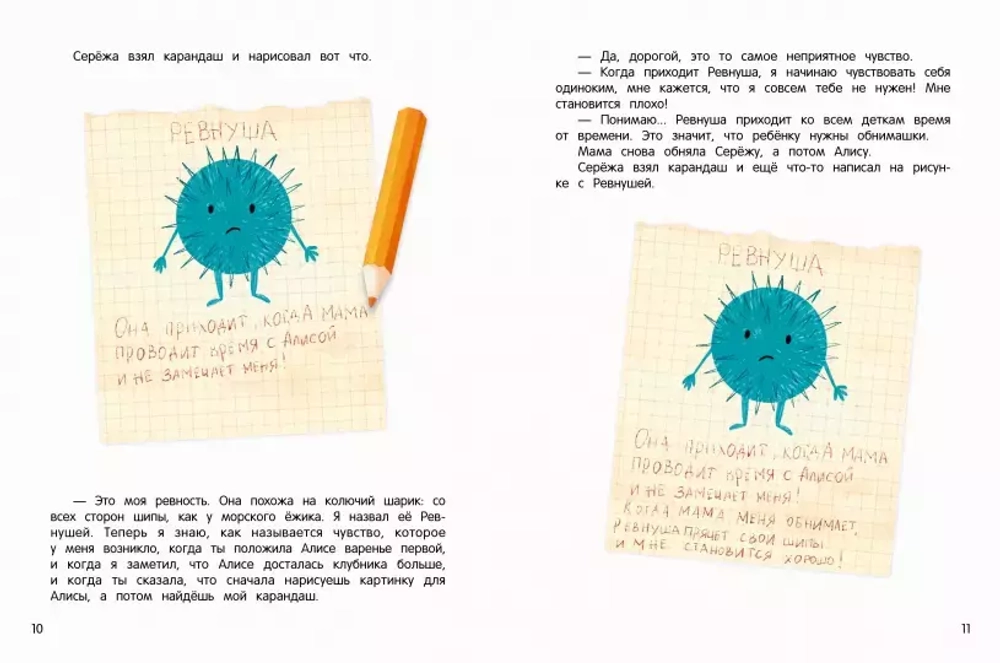 Серёжа взял карандаш и нарисовал вот что.
РЕВНУША
ОНА ПРИХОДИТ, КОГДА МАМА
ПРОВОДИТ ВРЕМЯ С АЛИСОЙ
И НЕ ЗАМЕЧАЕТ МЕНЯ!
— Это моя ревность. Она похожа на колючий шарик: со
всех сторон шипы, как у морского ёжика. Я назвал её Рев-
нушей. Теперь я знаю, как называется чувство, которое
у меня возникло, когда ты положила Алисе варенье первой,
и когда я заметил, что Алисе досталась клубника больше,
и когда ты сказала, что сначала нарисуешь картинку для
Алисы, а потом найдёшь мой карандаш.
10
— Да, дорогой, это то самое неприятное чувство.
— Когда приходит Ревнуша, я начинаю чувствовать себя
одиноким, мне кажется, что я совсем тебе не нужен! Мне
становится плохо!
— Понимаю... Ревнуша приходит ко всем деткам время
от времени. Это значит, что ребёнку нужны обнимашки.
Мама снова обняла Серёжу, а потом Алису.
Серёжа взял карандаш и ещё что-то написал на рисун-
ке с Ревнушей.
РЕВНУША
ОНА ПРИХОДИТ, КОГДА МАМА
ПРОВОДИТ ВРЕМЯ С АЛИСОЙ
И НЕ ЗАМЕЧАЕТ МЕНЯ!
КОГДА МАМА МЕНЯ ОБНИМАЕТ,
РЕВНУША ПРЯЧЕТ СВОИ ШИПЫ
И МНЕ СТАНОВИТСЯ ХОРОШО!
11